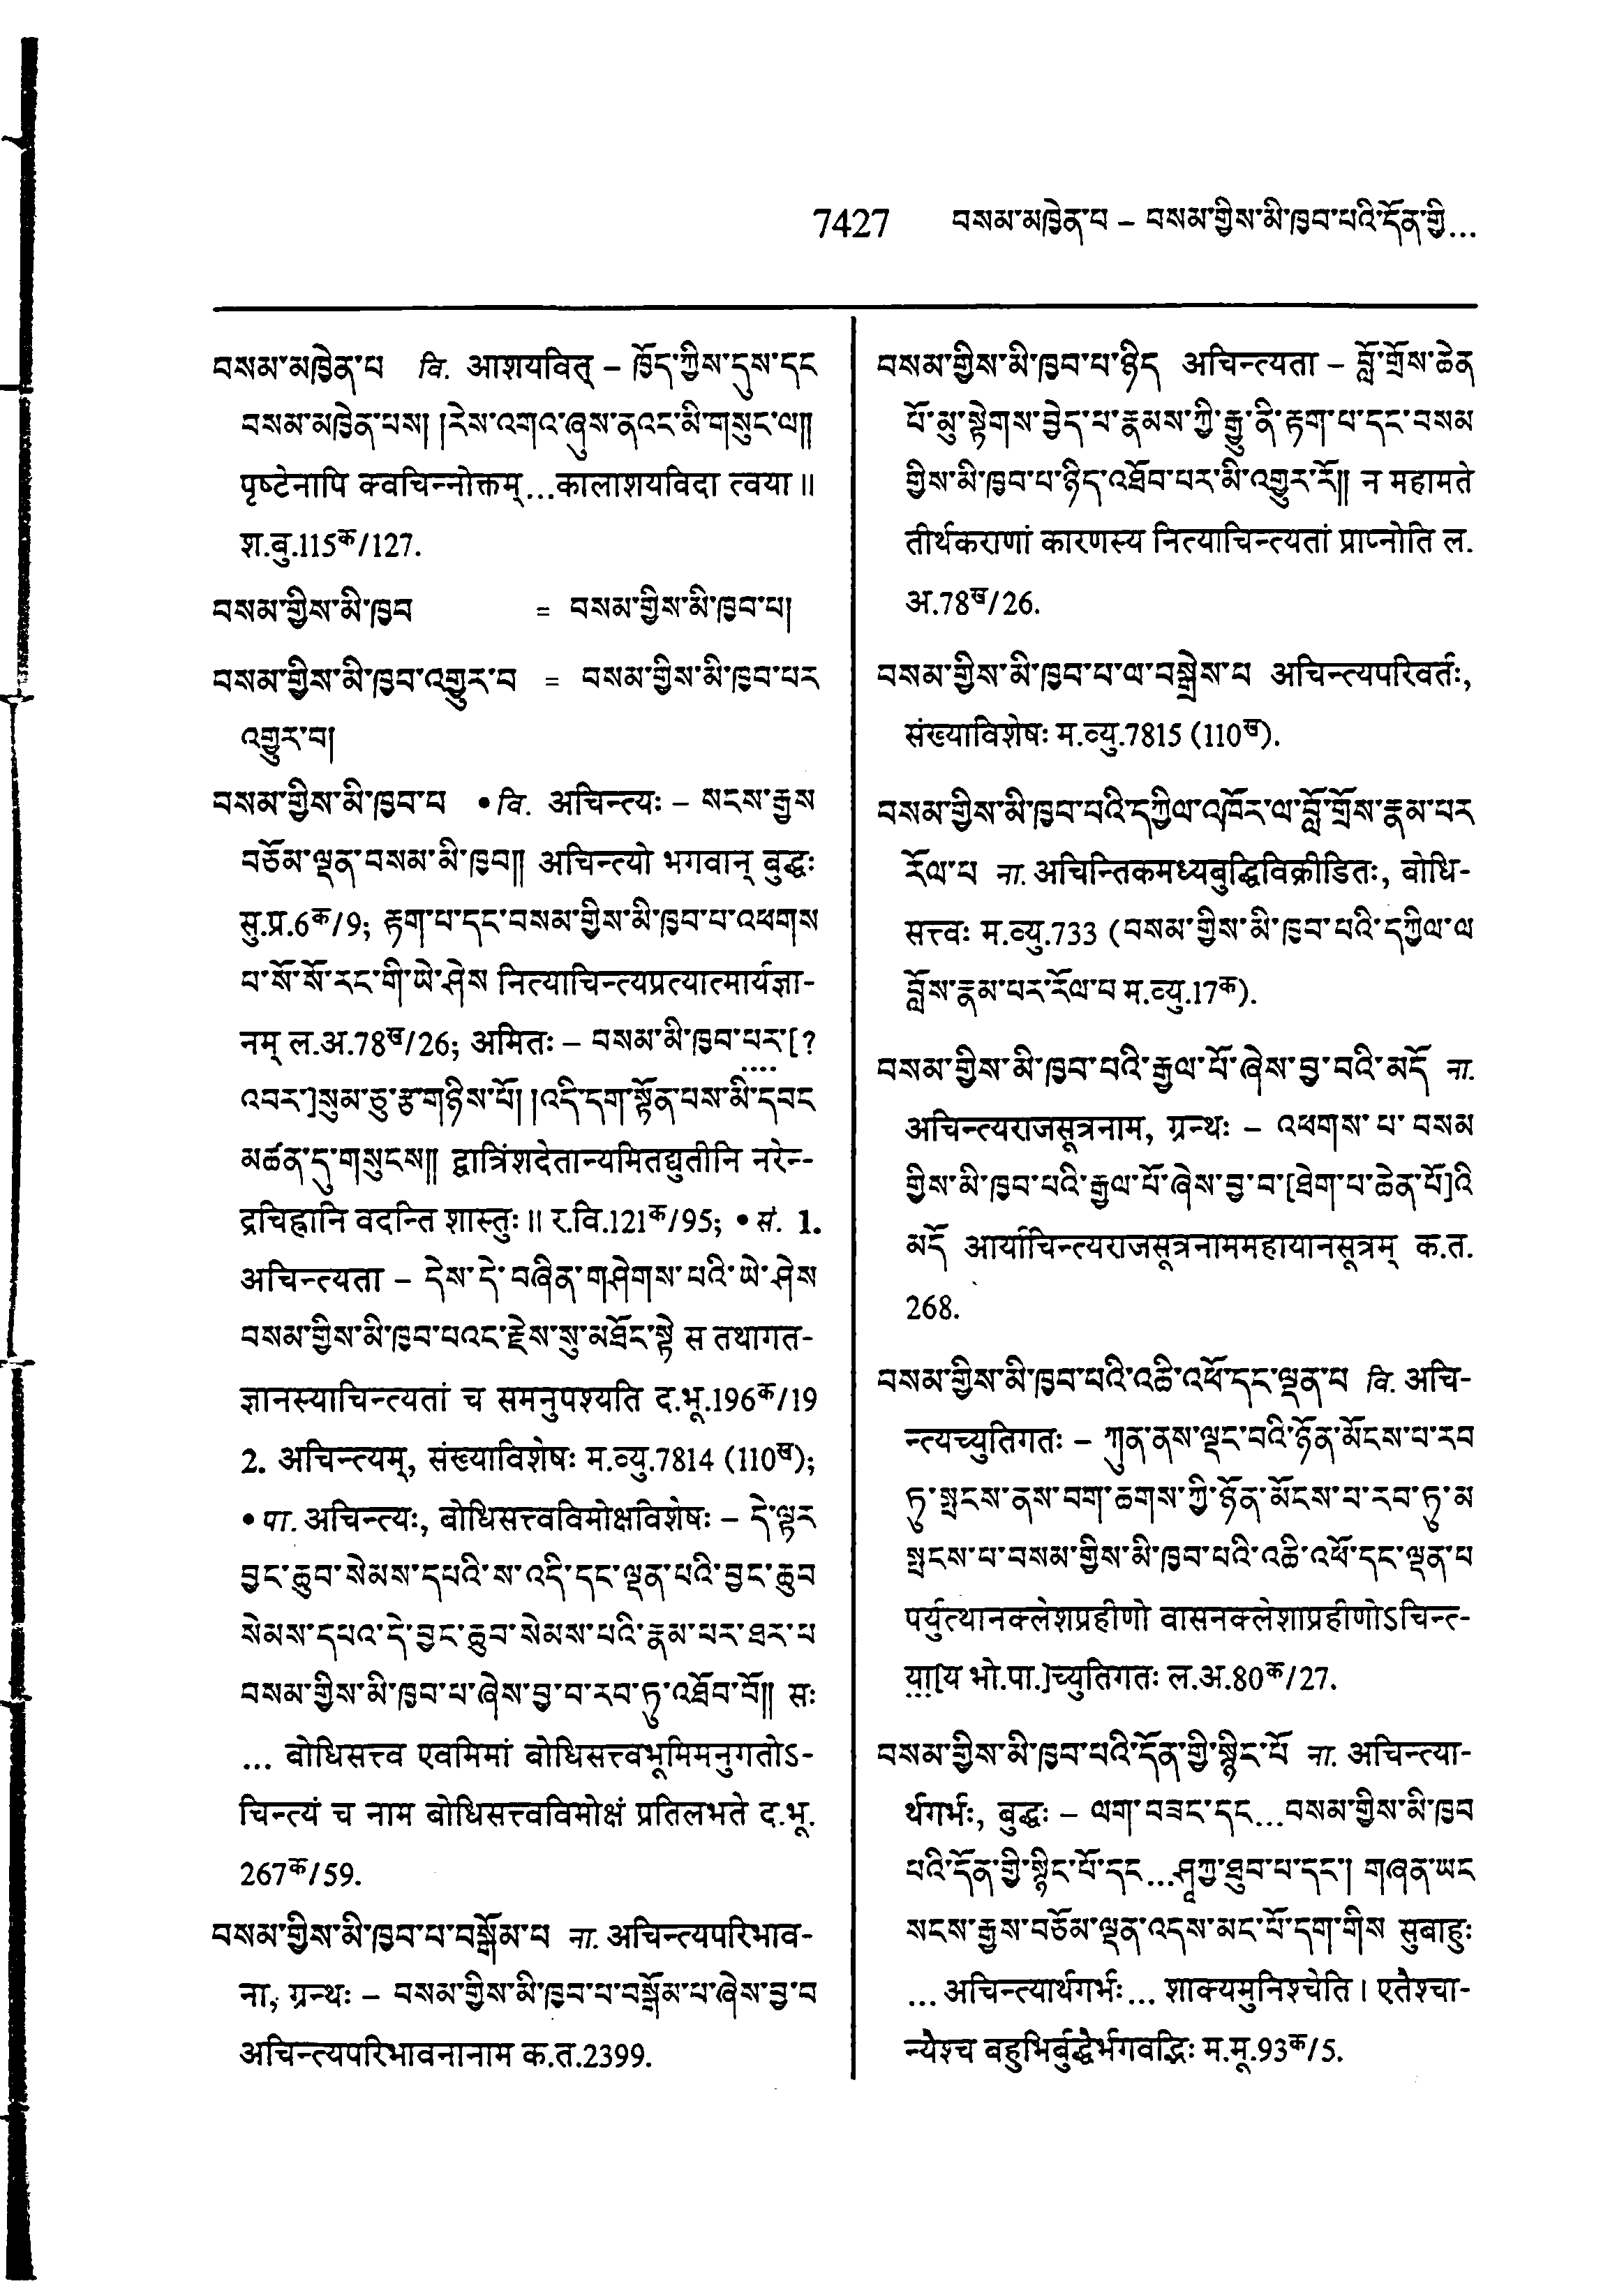 7427 བསམ་མཁྱེན་པ – བསམ་གྱིས་མི་ཁྱབ་པའི་དོན་གྱི...
བསམ་མཁྱེན་པ वि. आशयवित् – ཁྱོད་ཀྱིས་དུས་དང
བསམ་མཁྱེན་པས། །རེས་འགའ་ཞུས་ནའང་མི་གསུང་ལ༎
पृष्टेनापि क्वचिन्नोक्तम्...कालाशयविदा त्वया ॥
श.बु.115क/127.
བསམ་གྱིས་མི་ཁྱབ = བསམ་གྱིས་མི་ཁྱབ་པ།
བསམ་གྱིས་མི་ཁྱབ་འགྱུར་བ = བསམ་གྱིས་མི་ཁྱབ་པར
འགྱུར་བ།
བསམ་གྱིས་མི་ཁྱབ་པ • वि. अचिन्त्यः – སངས་རྒྱས
བཅོམ་ལྡན་བསམ་མི་ཁྱབ༎ अचिन्त्यो भगवान् बुद्धः
सु.प्र.6क/9; རྟག་པ་དང་བསམ་གྱིས་མི་ཁྱབ་པ་འཕགས
པ་སོ་སོ་རང་གི་ཡེ་ཤེས नित्याचिन्त्यप्रत्यात्मार्यज्ञा-
नम् ल.अ.78ख/26; अमितः – བསམ་མི་ཁྱབ་པར་[?
འབར་]སུམ་ཅུ་རྩ་གཉིས་པོ། །འདི་དག་སྟོན་པས་མི་དབང
མཚན་དུ་གསུངས༎ द्वात्रिंशदेतान्यमितद्युतीनि नरेन्-
द्रचिह्नानि वदन्ति शास्तुः ॥ र.वि.121क/95; • सं. 1.
अचिन्त्यता – དེས་དེ་བཞིན་གཤེགས་པའི་ཡེ་ཤེས
བསམ་གྱིས་མི་ཁྱབ་པའང་རྗེས་སུ་མཐོང་སྟེ स तथागत-
ज्ञानस्याचिन्त्यतां च समनुपश्यति द.भू.196क/19
2. अचिन्त्यम्, संख्याविशेषः म.व्यु.7814 (110ख);
• पा. अचिन्त्यः, बोधिसत्त्वविमोक्षविशेषः – དེ་ལྟར
བྱང་ཆུབ་སེམས་དཔའི་ས་འདི་དང་ལྡན་པའི་བྱང་ཆུབ
སེམས་དཔའ་དེ་བྱང་ཆུབ་སེམས་པའི་རྣམ་པར་ཐར་པ
བསམ་གྱིས་མི་ཁྱབ་པ་ཞེས་བྱ་བ་རབ་ཏུ་འཐོབ་བོ༎ सः
... बोधिसत्त्व एवमिमां बोधिसत्त्वभूमिमनुगतोऽ-
चिन्त्यं च नाम बोधिसत्त्वविमोक्षं प्रतिलभते द.भू.
267क/59.
བསམ་གྱིས་མི་ཁྱབ་པ་བསྒོམ་པ ना. अचिन्त्यपरिभाव-
ना, ग्रन्थः – བསམ་གྱིས་མི་ཁྱབ་པ་བསྒོམ་པ་ཞེས་བྱ་བ
अचिन्त्यपरिभावनानाम क.त.2399.
བསམ་གྱིས་མི་ཁྱབ་པ་ཉིད अचिन्त्यता – བློ་གྲོས་ཆེན
པོ་མུ་སྟེགས་བྱེད་པ་རྣམས་ཀྱི་རྒྱུ་ནི་རྟག་པ་དང་བསམ
གྱིས་མི་ཁྱབ་པ་ཉིད་འཐོབ་པར་མི་འགྱུར་རོ༎ न महामते
तीर्थकराणां कारणस्य नित्याचिन्त्यतां प्राप्नोति ल.
अ.78ख/26.
བསམ་གྱིས་མི་ཁྱབ་པ་ལ་བསྒྲེས་པ अचिन्त्यपरिवर्तः,
संख्याविशेषः म.व्यु.7815 (110ख).
བསམ་གྱིས་མི་ཁྱབ་པའི་དཀྱིལ་འཁོར་ལ་བློ་གྲོས་རྣམ་པར
རོལ་པ ना. अचिन्तिकमध्यबुद्धिविक्रीडितः, बोधि-
सत्त्वः म.व्यु.733 (བསམ་གྱིས་མི་ཁྱབ་པའི་དཀྱིལ་ལ
བློས་རྣམ་པར་རོལ་པ म.व्यु.17क).
བསམ་གྱིས་མི་ཁྱབ་པའི་རྒྱལ་པོ་ཞེས་བྱ་བའི་མདོ ना.
अचिन्त्यराजसूत्रनाम, ग्रन्थः – འཕགས་པ་བསམ
གྱིས་མི་ཁྱབ་པའི་རྒྱལ་པོ་ཞེས་བྱ་བ་[ཐེག་པ་ཆེན་པོ]འི
མདོ आर्याचिन्त्यराजसूत्रनाममहायानसूत्रम् क.त.
268.
བསམ་གྱིས་མི་ཁྱབ་པའི་འཆི་འཕོ་དང་ལྡན་པ वि. अचि-
न्त्यच्युतिगतः – ཀུན་ནས་ལྡང་བའི་ཉོན་མོངས་པ་རབ
ཏུ་སྤངས་ནས་བག་ཆགས་ཀྱི་ཉོན་མོངས་པ་རབ་ཏུ་མ
སྤངས་པ་བསམ་གྱིས་མི་ཁྱབ་པའི་འཆི་འཕོ་དང་ལྡན་པ
पर्युत्थानक्लेशप्रहीणो वासनक्लेशाप्रहीणोऽचिन्त-
या[य भो.पा.]च्युतिगतः ल.अ.80क/27.
བསམ་གྱིས་མི་ཁྱབ་པའི་དོན་གྱི་སྙིང་པོ ना. अचिन्त्या-
र्थगर्भः, बुद्धः – ལག་བཟང་དང...བསམ་གྱིས་མི་ཁྱབ
པའི་དོན་གྱི་སྙིང་པོ་དང...ཤཱཀྱ་ཐུབ་པ་དང་། གཞན་ཡང
སངས་རྒྱས་བཅོམ་ལྡན་འདས་མང་པོ་དག་གིས सुबाहुः
... अचिन्त्यार्थगर्भः... शाक्यमुनिश्चेति । एतैश्चा-
न्यैश्च बहुभिर्बुद्धैर्भगवद्भिः म.मू.93क/5.